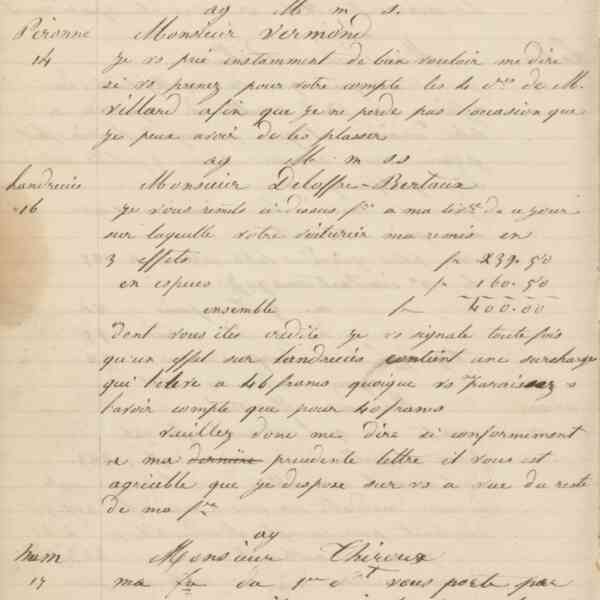 ay M. m s.
Péronne Monsieur Vermond
14 Je vs prie instamment de bien vouloir me dire
si vs prenez pour votre compte les de M.
Villard afin que je ne perde pas l'occasion que
je peux avoir de les plasser
ay M. m ss
Landrecies Monsieur Deloffre-Bertaux
16 Je vous remets ci-dessus fre a ma de ce jour
sur laquelle votre voiturier ma remis en
3 effets fr 239.50
en especes fr 160.50
ensemble fr 400.00
dont vous êtes crédité je vs signale toute fois
qu'un effet sur Landrecies contient une surcharge
qui l'élève a 46 francs quoique vs paraissez
l'avoir compté que pour 40 francs
Veuillez donc me dire si conformement
a ma dernière precedente lettre il vous est
agréable que je dispose sur vs a vue du reste
de ma fre
ay
ham Monsieur Chiroux
17 ma fre du 1er ct vous porte par